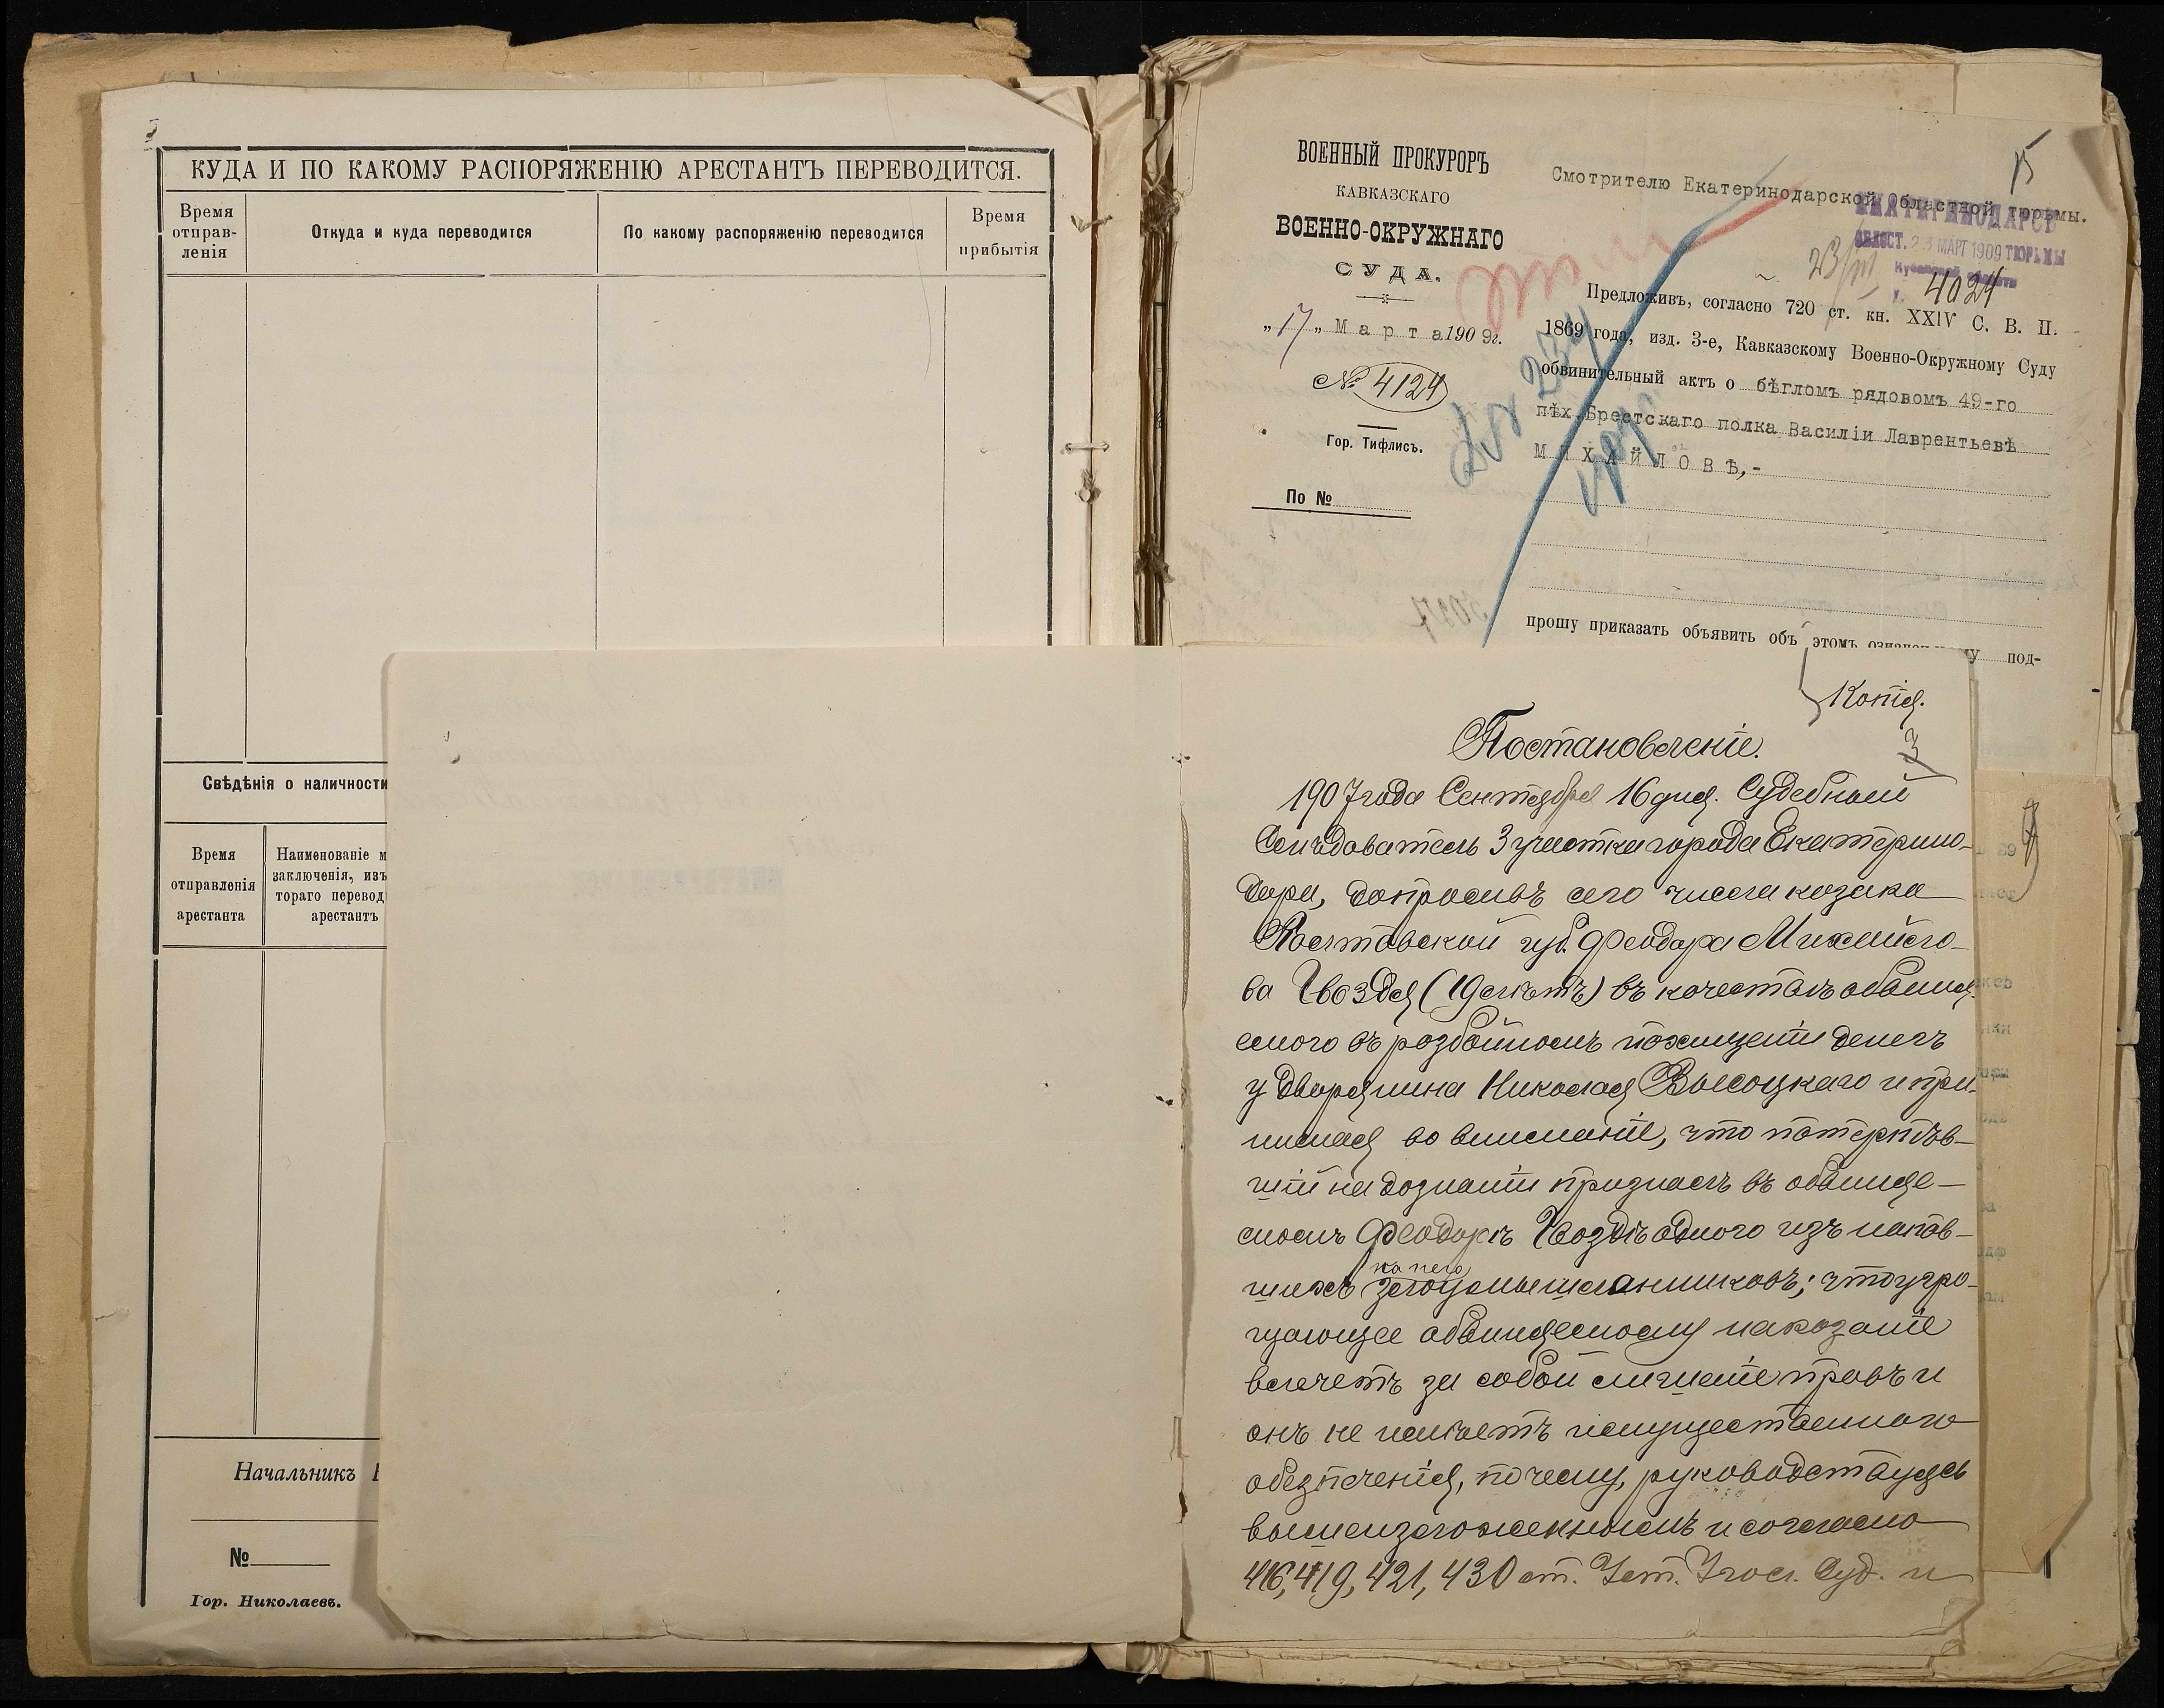 КУДА И ПО КАКОМУ РАСПОРЯЖЕНІЮ АРЕСТАНТЪ ПЕРЕВОДИТСЯ.
Время
отправ-
ленія
Откуда и куда переводится
По какому распоряженію переводится
Время
прибытія
Свѣдѣнія о наличности
Время
отправленія
арестанта
Наименованіе м
заключенія, изъ
тораго перевод
арестантъ
Начальникъ
№
Гор. Николаевъ.
ВОЕННЫЙ ПРОКУРОРЪ
КАВКАЗСКАГО
ВОЕННО-ОКРУЖНАГО
СУДА.
„17„ Марта 1909г.
№ 4124
Гор. Тифлисъ.
По №
15
Смотрителю Екатеринодарской Областной тюрьмы.
ЕКАТЕРИНОДАРСК
ОБЛАСТ. 23 МАРТ 1909 ТЮРЬМЫ
Кубанской области
23/III 4024
Предложивъ, согласно 720 ст. кн. XXIV С. В. П.
1869 года, изд. 3-е, Кавказскому Военно-Окружному Суду
обвинительный актъ о бѣгломъ рядовомъ 49-го
пѣх.Брестскаго полка Василіи Лаврентьевѣ
МИХАЙЛОВѢ,-
прошу приказать объявить объ этомъ под-
Копія.
3
Постановленіе.
1907 года Сентября 16 дня. Судебный
Слѣдователь 3 участка города Екатерино-
дара, допросивъ сего числа козака
Полтавской губ. Феодора Михайло-
ва Гвоздя (19 лѣтъ) въ качествѣ обвиня-
емого въ розбойномъ похищеніи денегъ
у дворянина Николая Высоцкаго и при-
нимая во вниманіе, что потерпѣв-
шій на дознаніи призналъ въ обвиняе-
момъ Феодорѣ Гвоздѣ одного изъ напав-
шихъ на него злоумышленниковъ; что угро-
жающее обвиняемому наказаніе
влечетъ за собой лишеніе правъ и
онъ не имѣетъ имущественнаго
обезпеченія, почему, руководствуясь
вышеизложеннымъ и согласно
416, 419, 421, 430 ст. Уст. Угол. Суд. и